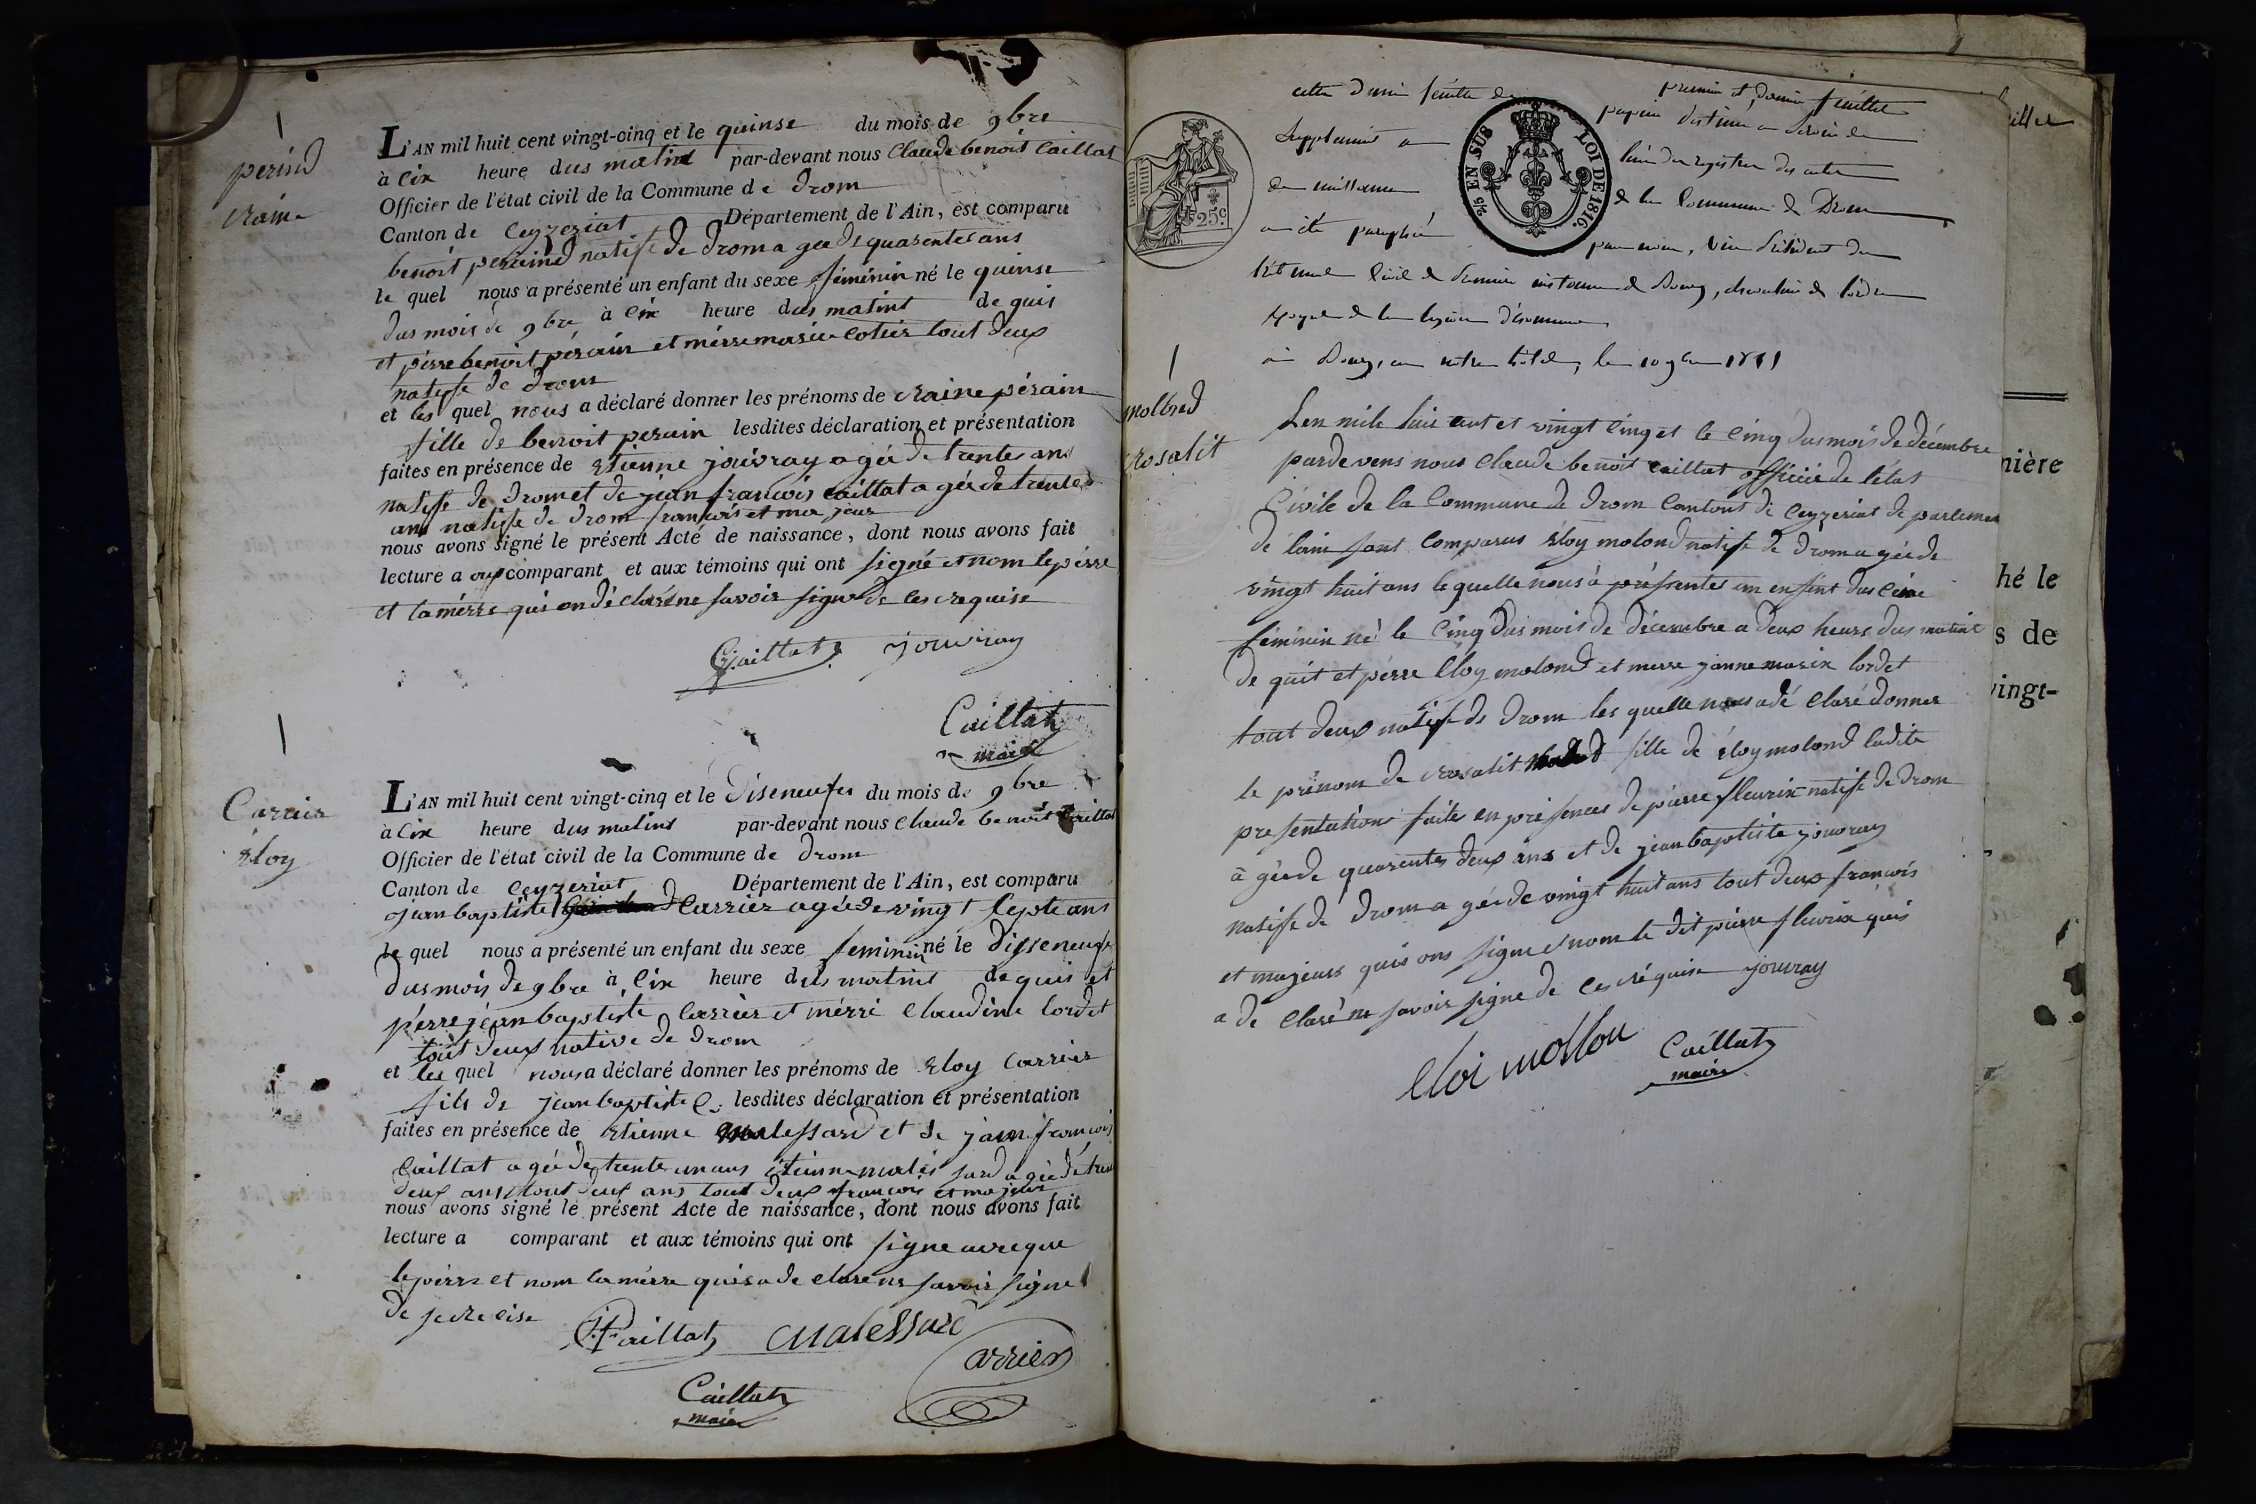 1
perind
raine
L'AN mil huit cent vingt-cinq et le quinse du mois de 9bre
à cix heure dus matint par-devant nous Claude benoit Caillat
Officier de l'état civil de la Commune de drom
Canton de Ceyzeziat Département de l'Ain, est comparu
benoit peraind natife de drom a gée de quarentes ans
le quel nous a présenté un enfant du sexe féminin né le quinse
dus mois de 9bre à cix heure dus matint de quis
et pérre benoit pérain et mérre marie cotier tout deux
natife de drom
et les quel nous a déclaré donner les prénoms de raine pérain
fille de benoit perain lesdites déclaration et présentation
faites en présence de Etienne jouvray a gée de trentes ans
natife de drom et de jean francois caillat a gée de trentes
ans natife de drom francois et ma jeur
nous avons signé le présent Acte de naissance, dont nous avons fait
lecture a comparant et aux témoins qui ont signé et nom le pérre
et la mérre quis on dé claré ne savoir signe de ces requise
Caillat jouvray
Caillat
maire
1
Carrier
Eloy
L'AN mil huit cent vingt-cinq et le diseneufes du mois de 9bre
à cix heure dus matins par-devant nous Claude benoit Caillat
Officier de l'état civil de la Commune de drom
Canton de Ceyzeriat Département de l'Ain, est comparu
jean baptiste Carrier a gée de vingt septe ans
le quel nous a présenté un enfant du sexe feminin né le disseneufe
dus mois de 9bre à cix heure dus matint de quis et
pérre jéan baptiste Carrier et mérre Claudine Cordet
tout deux native de drom
et les quel nous a déclaré donner les prénoms de Eloy Carrier
fils de jean baptiste C. lesdites déclaration et présentation
faites en présence de Etienne malessard et de jean francois
Caillat a gée de trente un ans étienne males sard a gée de tren
deux ans tout deux ans tout deux francois et majeur
nous avons signé le présent Acte de naissance, dont nous avons fait
lecture a comparant et aux témoins qui ont signe avecque
le pérre et nom la mérre quis a de clare ne savoir signe
de
Caillat malessard
Carrier
Caillat
maire
premier et dernier feuillet
cette demi feuille de papier destinée a servir de
Supplement a des registres des actes
de naissance de la Commune de Drom
a été paraphée par nous, vice Président du
tribunal Civil de première instance de Bourg, chevalier de l'ordre
royal de la légion d'honneur
à Bourg, en notre hôtel, le 10 9bre
2/5 EN SUS LOI DE 1816.
25c
1
molbnd
rosalit
Len mile huit cent et vingt cinq et le cinq dus mois de décembre
parde vens nous Claude benoit caillat officié de létat
Civile de la Commune de drom Cantont de Ceyzeriat de partemen
de lain sont comparus Eloy molond natife de drom a gée de
vingt huit ans le quelle nous à présentes un enfent dus cexe
féminin né le cinq dus mois de décembre a deux heure dus matint
de quit et pérre Eloy molond et merre janne marie Cordet
tout deux natif de drom les quelle nous a dé claré donner
le prénom de rosalit fille de éloy molond ladite
presentation faite en présences de pierre fleurix natife de drom
à gée de quarentes deux ans et de jean baptiste jouvray
natife de drom a gée de vingt huit ans tout deux francois
et majeurs quis ons signe et nom le dit pierre fleurix quis
a de claré ne savoir signe de ces réquise jouvray
Eloi mollon
Caillat
maire
nière
hé le
s de
vingt-